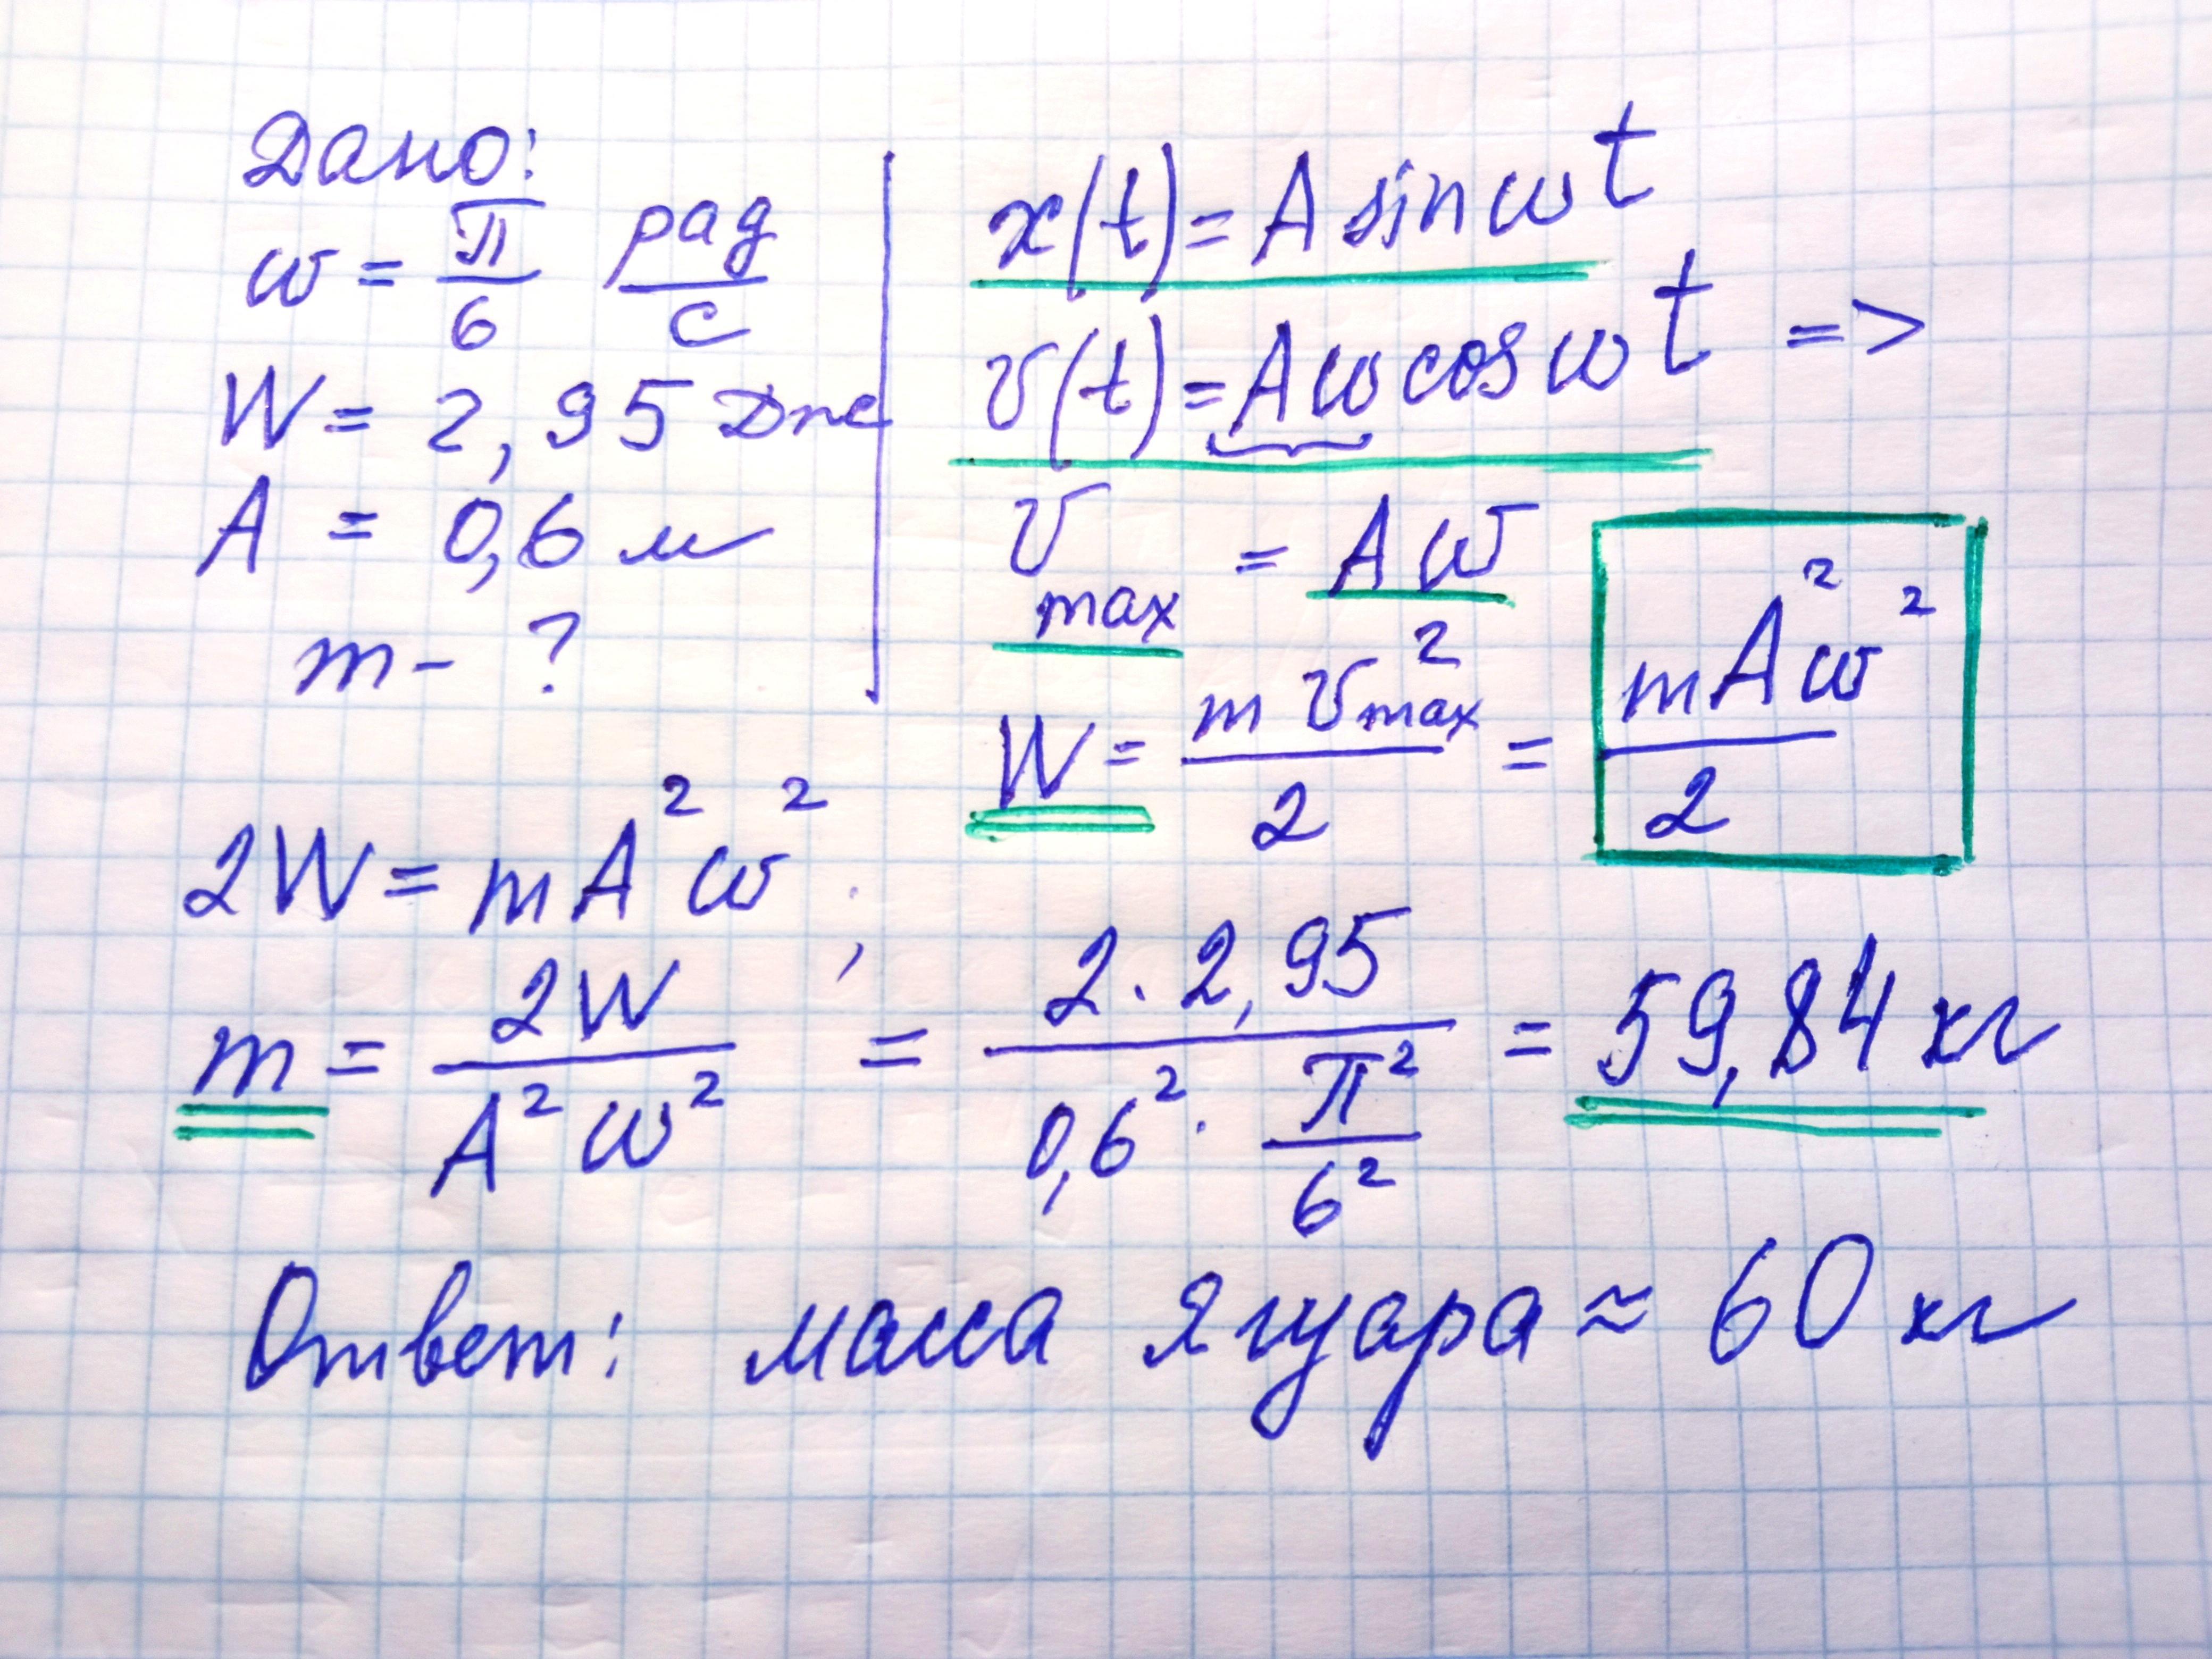 Дано:
ω = π/6 рад/с
W = 2,95 Дж
A = 0,6 м
m - ?
x(t) = A sin ωt
v(t) = Aω cos ωt =>
v max = Aω
W = m v²max / 2 = mA²ω² / 2
2W = mA²ω² ;
m = 2W / A²ω² = 2 · 2,95 / 0,6² · π²/6² = 59,84 кг
Ответ: масса ягуара ≈ 60 кг